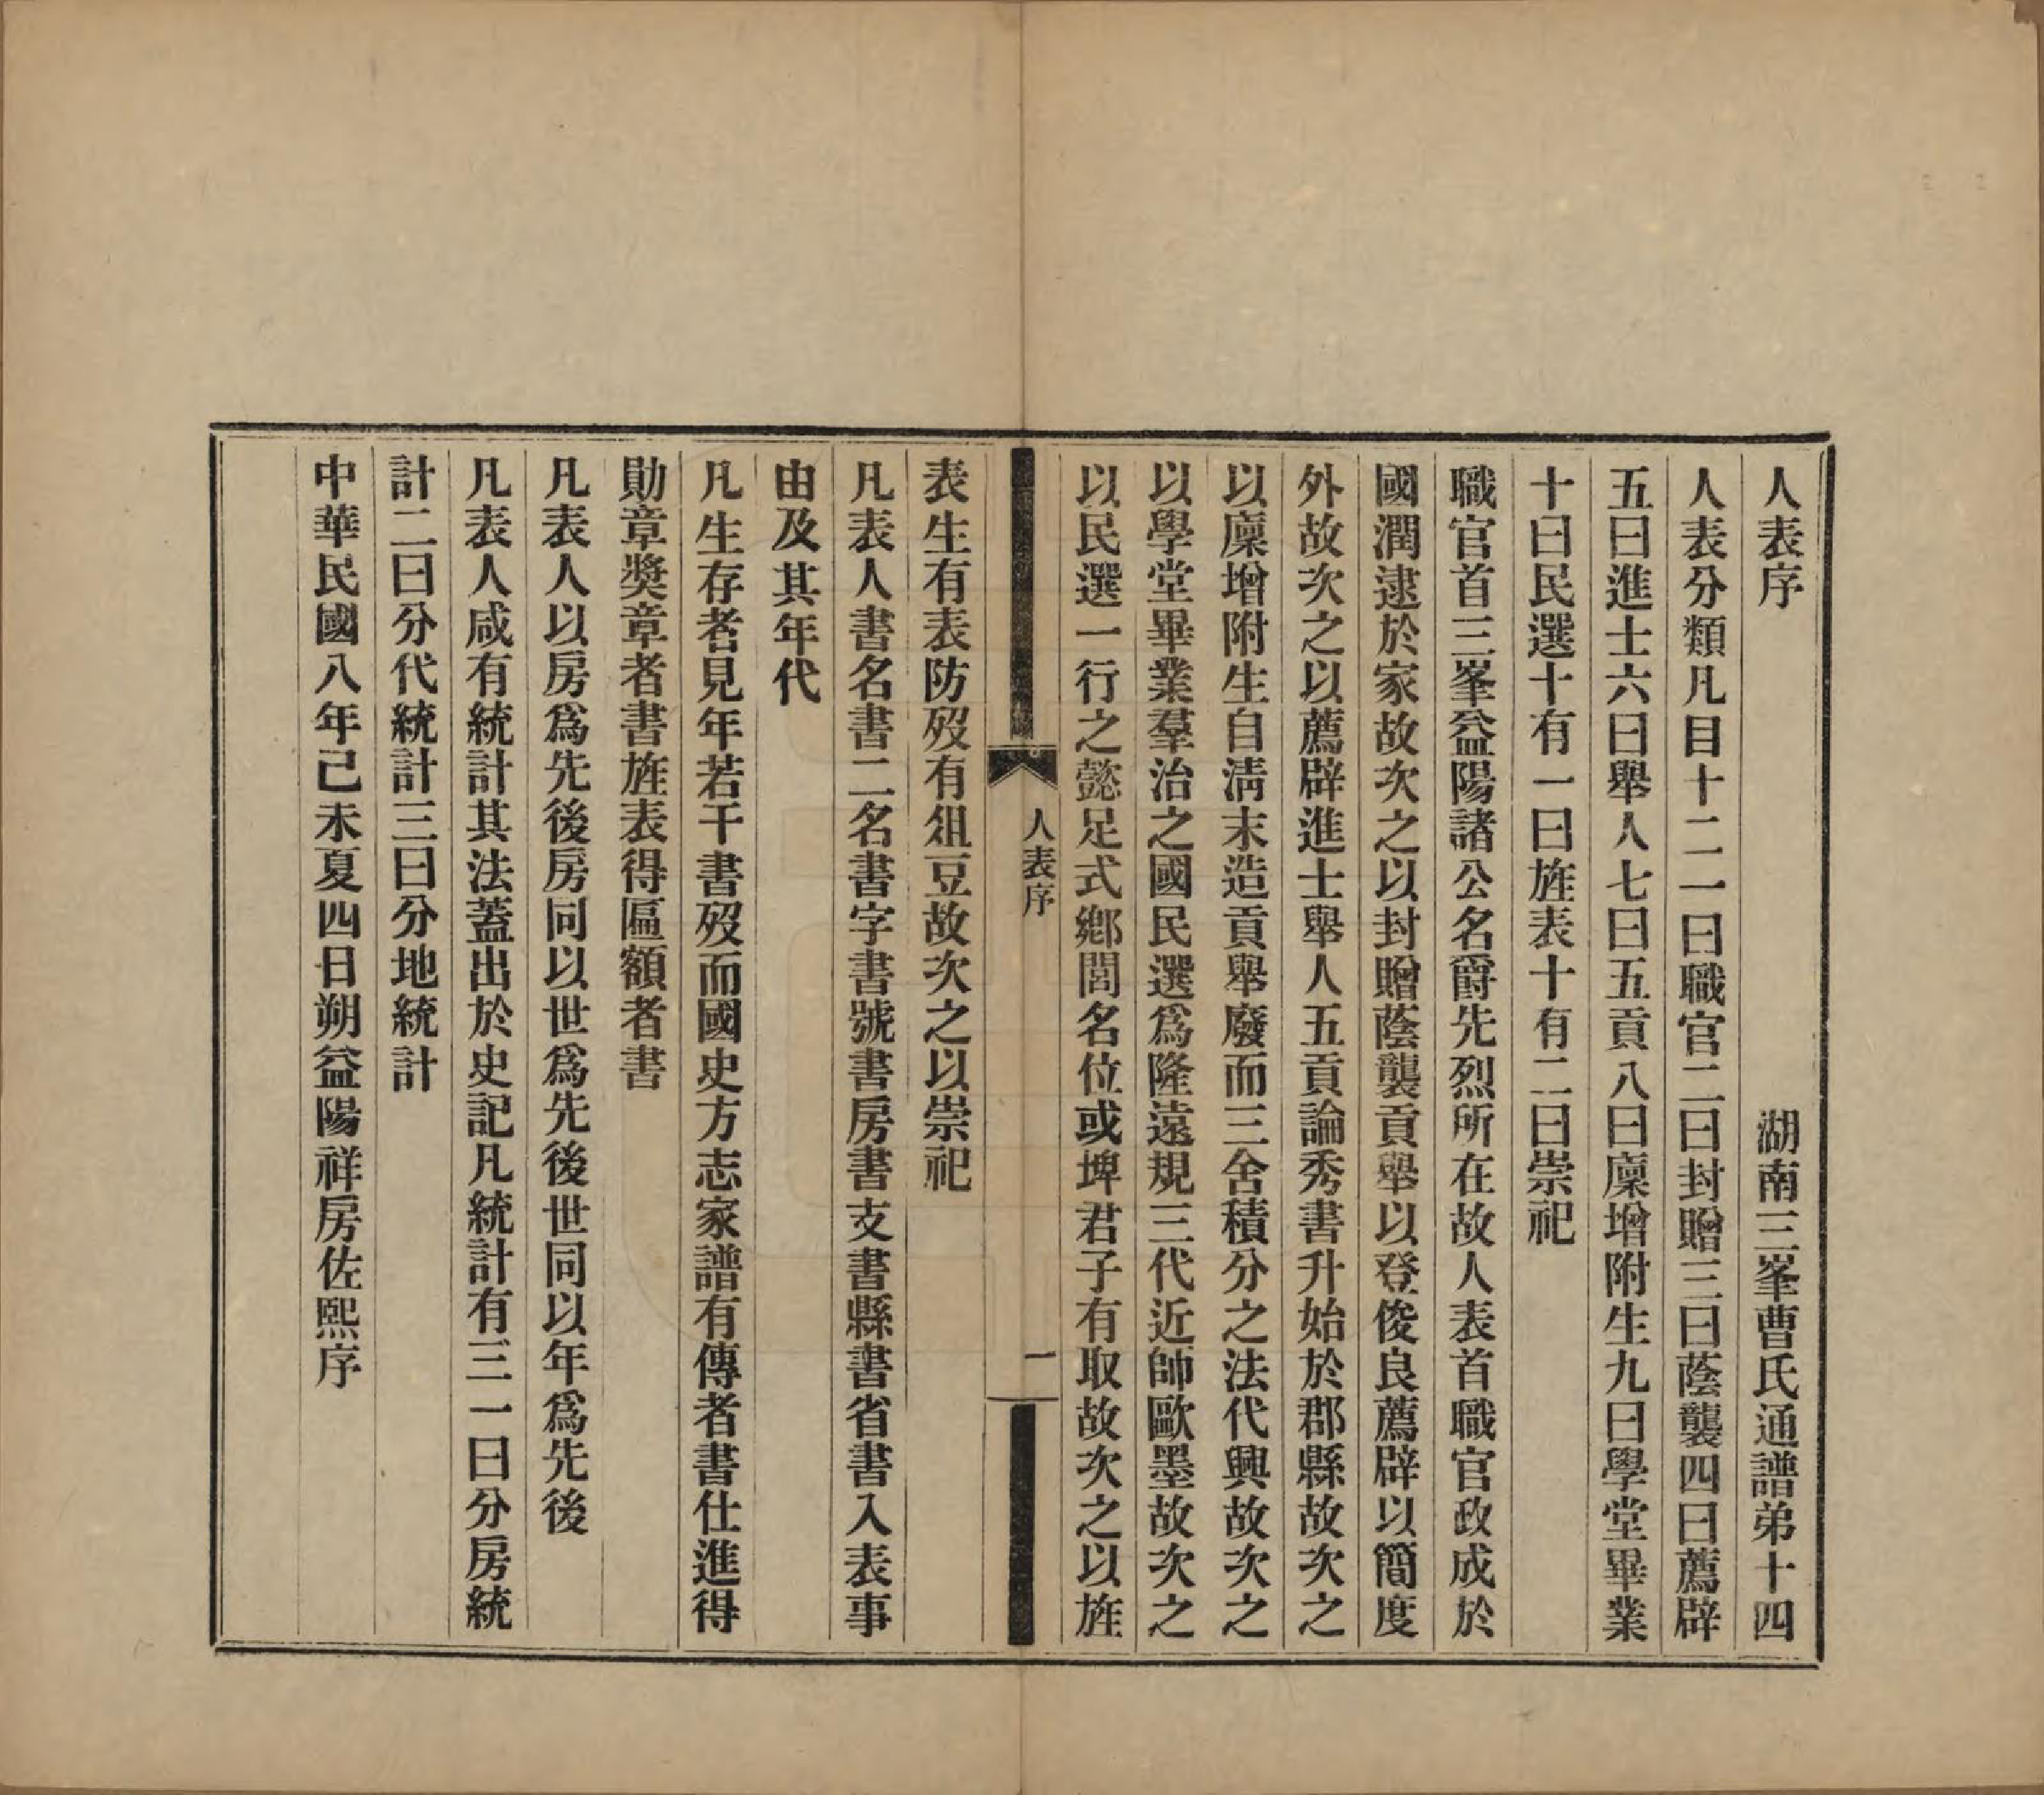 人表序　湖南三峯曹氏通譜弟十四
人表分類凡目十二一曰職官二曰封贈三曰蔭襲四曰薦辟
五曰進士六曰舉人七曰五貢八曰廩增附生九曰學堂畢業
十曰民選十有一曰旌表十有二曰崇祀
職官首三峯益陽諸公名爵先烈所在故人表首職官政成於
國潤逮於家故次之以封贈蔭襲貢舉以登俊良薦辟以簡度
外故次之以薦辟進士舉人五貢論秀書升始於郡縣故次之
以廩增附生自淸末造貢舉廢而三舍積分之法代興故次之
以學堂畢業羣治之國民選爲隆遠規三代近師歐墨故次之
以民選一行之懿足式鄕閭名位或埤君子有取故次之以旌
人表序
一
表生有表防歿有俎豆故次之以崇祀
凡表人書名書二名書字書號書房書支書縣書省書入表事
由及其年代
凡生存者見年若干書歿而國史方志家譜有傳者書仕進得
勛章獎章者書旌表得匾額者書
凡表人以房爲先後房同以世爲先後世同以年爲先後
凡表人咸有統計其法蓋出於史記凡統計有三一曰分房統
計二曰分代統計三曰分地統計
中華民國八年己未夏四日朔益陽祥房佐熙序